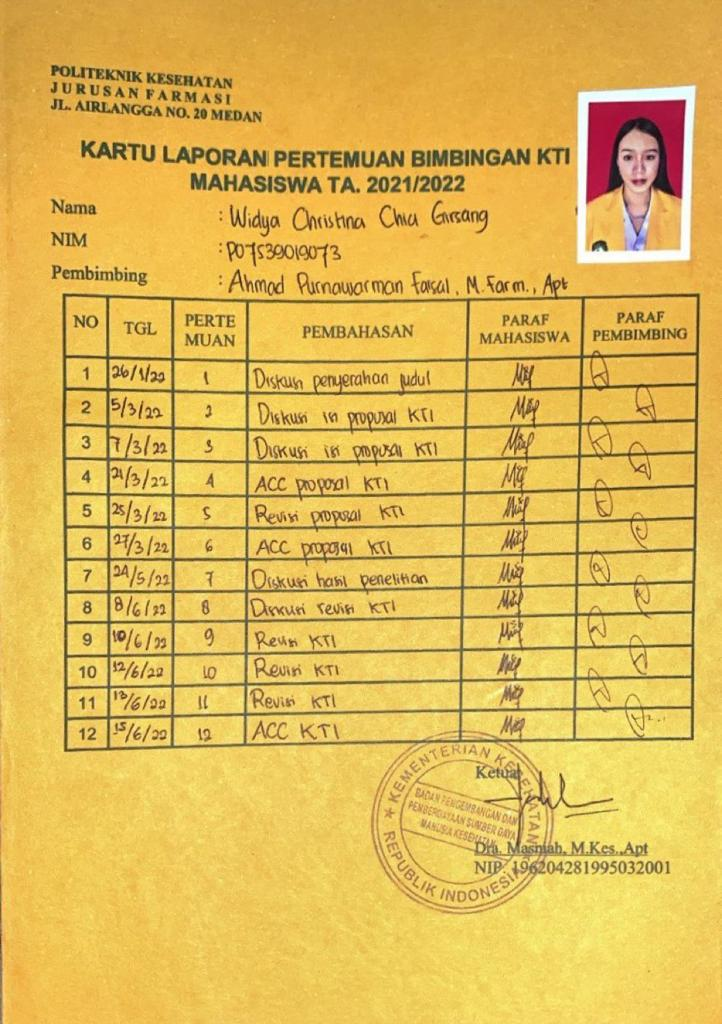 POLITEKNIK KESEHATAN
JURUSAN FARMASI
JL. AIRLANGGA NO. 20 MEDAN
KARTU LAPORAN PERTEMUAN BIMBINGAN KTI
MAHASISWA TA. 2021/2022
Nama : Widya Christina Chia Girsang
NIM : P07539019073
Pembimbing : Ahmad Purnawarman Faisal, M.Farm., Apt
NO TGL PERTE MUAN PEMBAHASAN PARAF MAHASISWA PARAF PEMBIMBING
1 26/1/22 1 Diskusi penyerahan judul
2 5/3/22 2 Diskusi isi proposal KTI
3 7/3/22 3 Diskusi isi proposal KTI
4 21/3/22 4 ACC proposal KTI
5 25/3/22 5 Revisi proposal KTI
6 27/3/22 6 ACC proposal KTI
7 24/5/22 7 Diskusi hasil penelitian
8 8/6/22 8 Diskusi revisi KTI
9 10/6/22 9 Revisi KTI
10 12/6/22 10 Revisi KTI
11 13/6/22 11 Revisi KTI
12 15/6/22 12 ACC KTI
Ketua
KEMENTERIAN KESEHATAN
BADAN PENGEMBANGAN DAN
PEMBERDAYAAN SUMBER DAYA
MANUSIA KESEHATAN
REPUBLIK INDONESIA
Dra. Masniah, M.Kes.,Apt
NIP. 196204281995032001